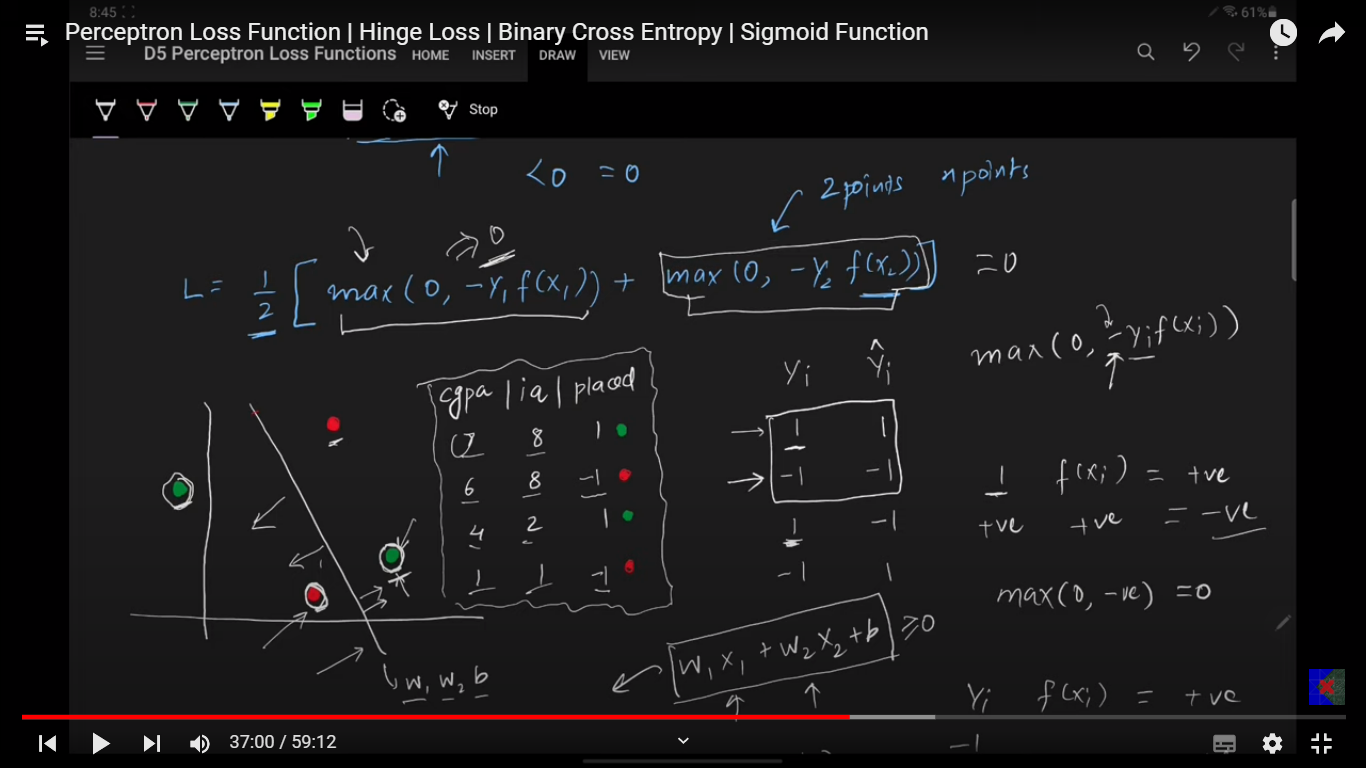 8:45 61%
Perceptron Loss Function | Hinge Loss | Binary Cross Entropy | Sigmoid Function
D5 Perceptron Loss Functions HOME INSERT DRAW VIEW
Stop
<0 =0
2 points n points
0
L = 1/2 [ max(0, -Y₁ f(x₁)) + max(0, -Y₂ f(x₂)) ] =0
max(0, -Yᵢ f(xᵢ))
cgpa | iq | placed
7 8 1
6 8 -1
4 2 1
1 1 -1
Yᵢ Ŷᵢ
1 1
-1 -1
1 -1
-1 1
1 f(xᵢ) = +ve
+ve +ve = -ve
max(0, -ve) =0
w₁x₁ + w₂x₂ + b ≥0
w₁ w₂ b
Yᵢ f(xᵢ) = +ve
-1
37:00 / 59:12